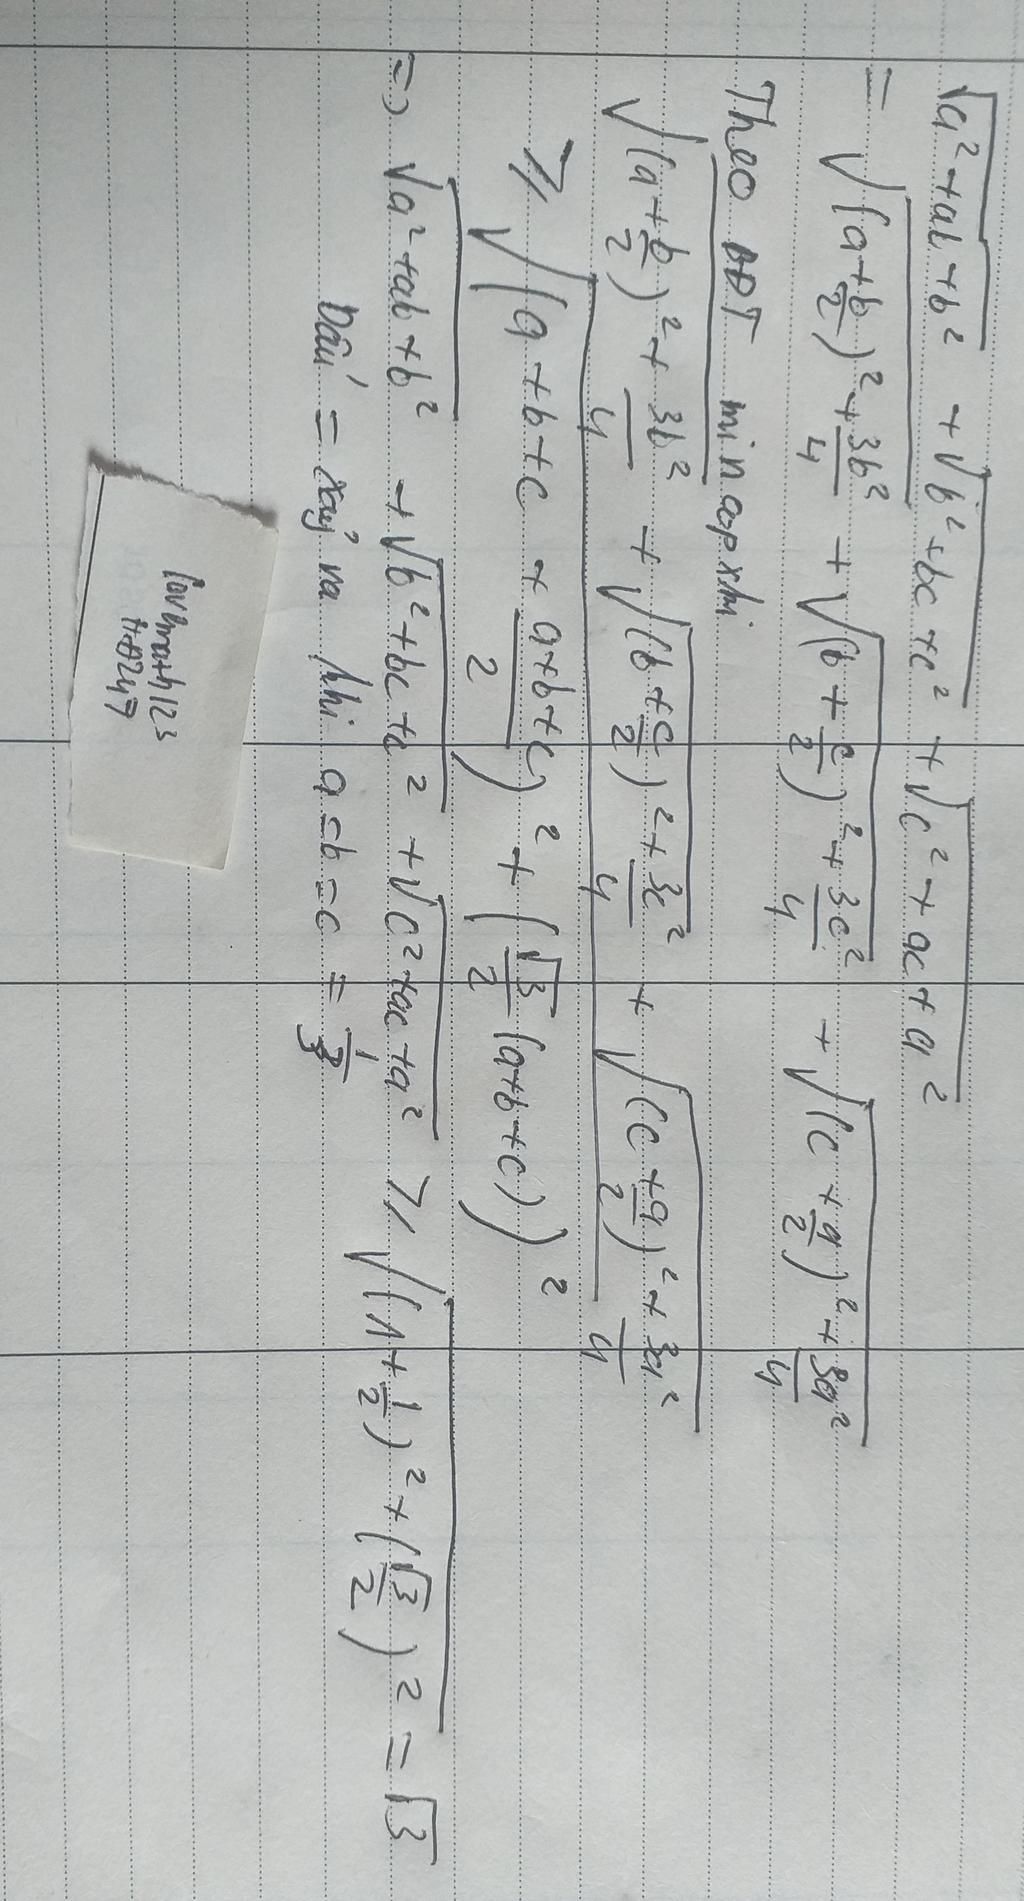 √(a² + ab + b²) + √(b² + bc + c²) + √(c² + ac + a²)
= √((a + b/2)² + 3b²/4) + √((b + c/2)² + 3c²/4) + √((c + a/2)² + 3a²/4)
Theo BĐT mincopxki
√((a + b/2)² + 3b²/4) + √((b + c/2)² + 3c²/4) + √((c + a/2)² + 3a²/4)
≥ √((a + b + c + (a+b+c)/2)² + (√3/2 (a+b+c))²)
=> √(a² + ab + b²) + √(b² + bc + c²) + √(c² + ac + a²) ≥ √((1 + 1/2)² + (√3/2)²) = √3
Dấu = xảy ra khi a = b = c = 1/3